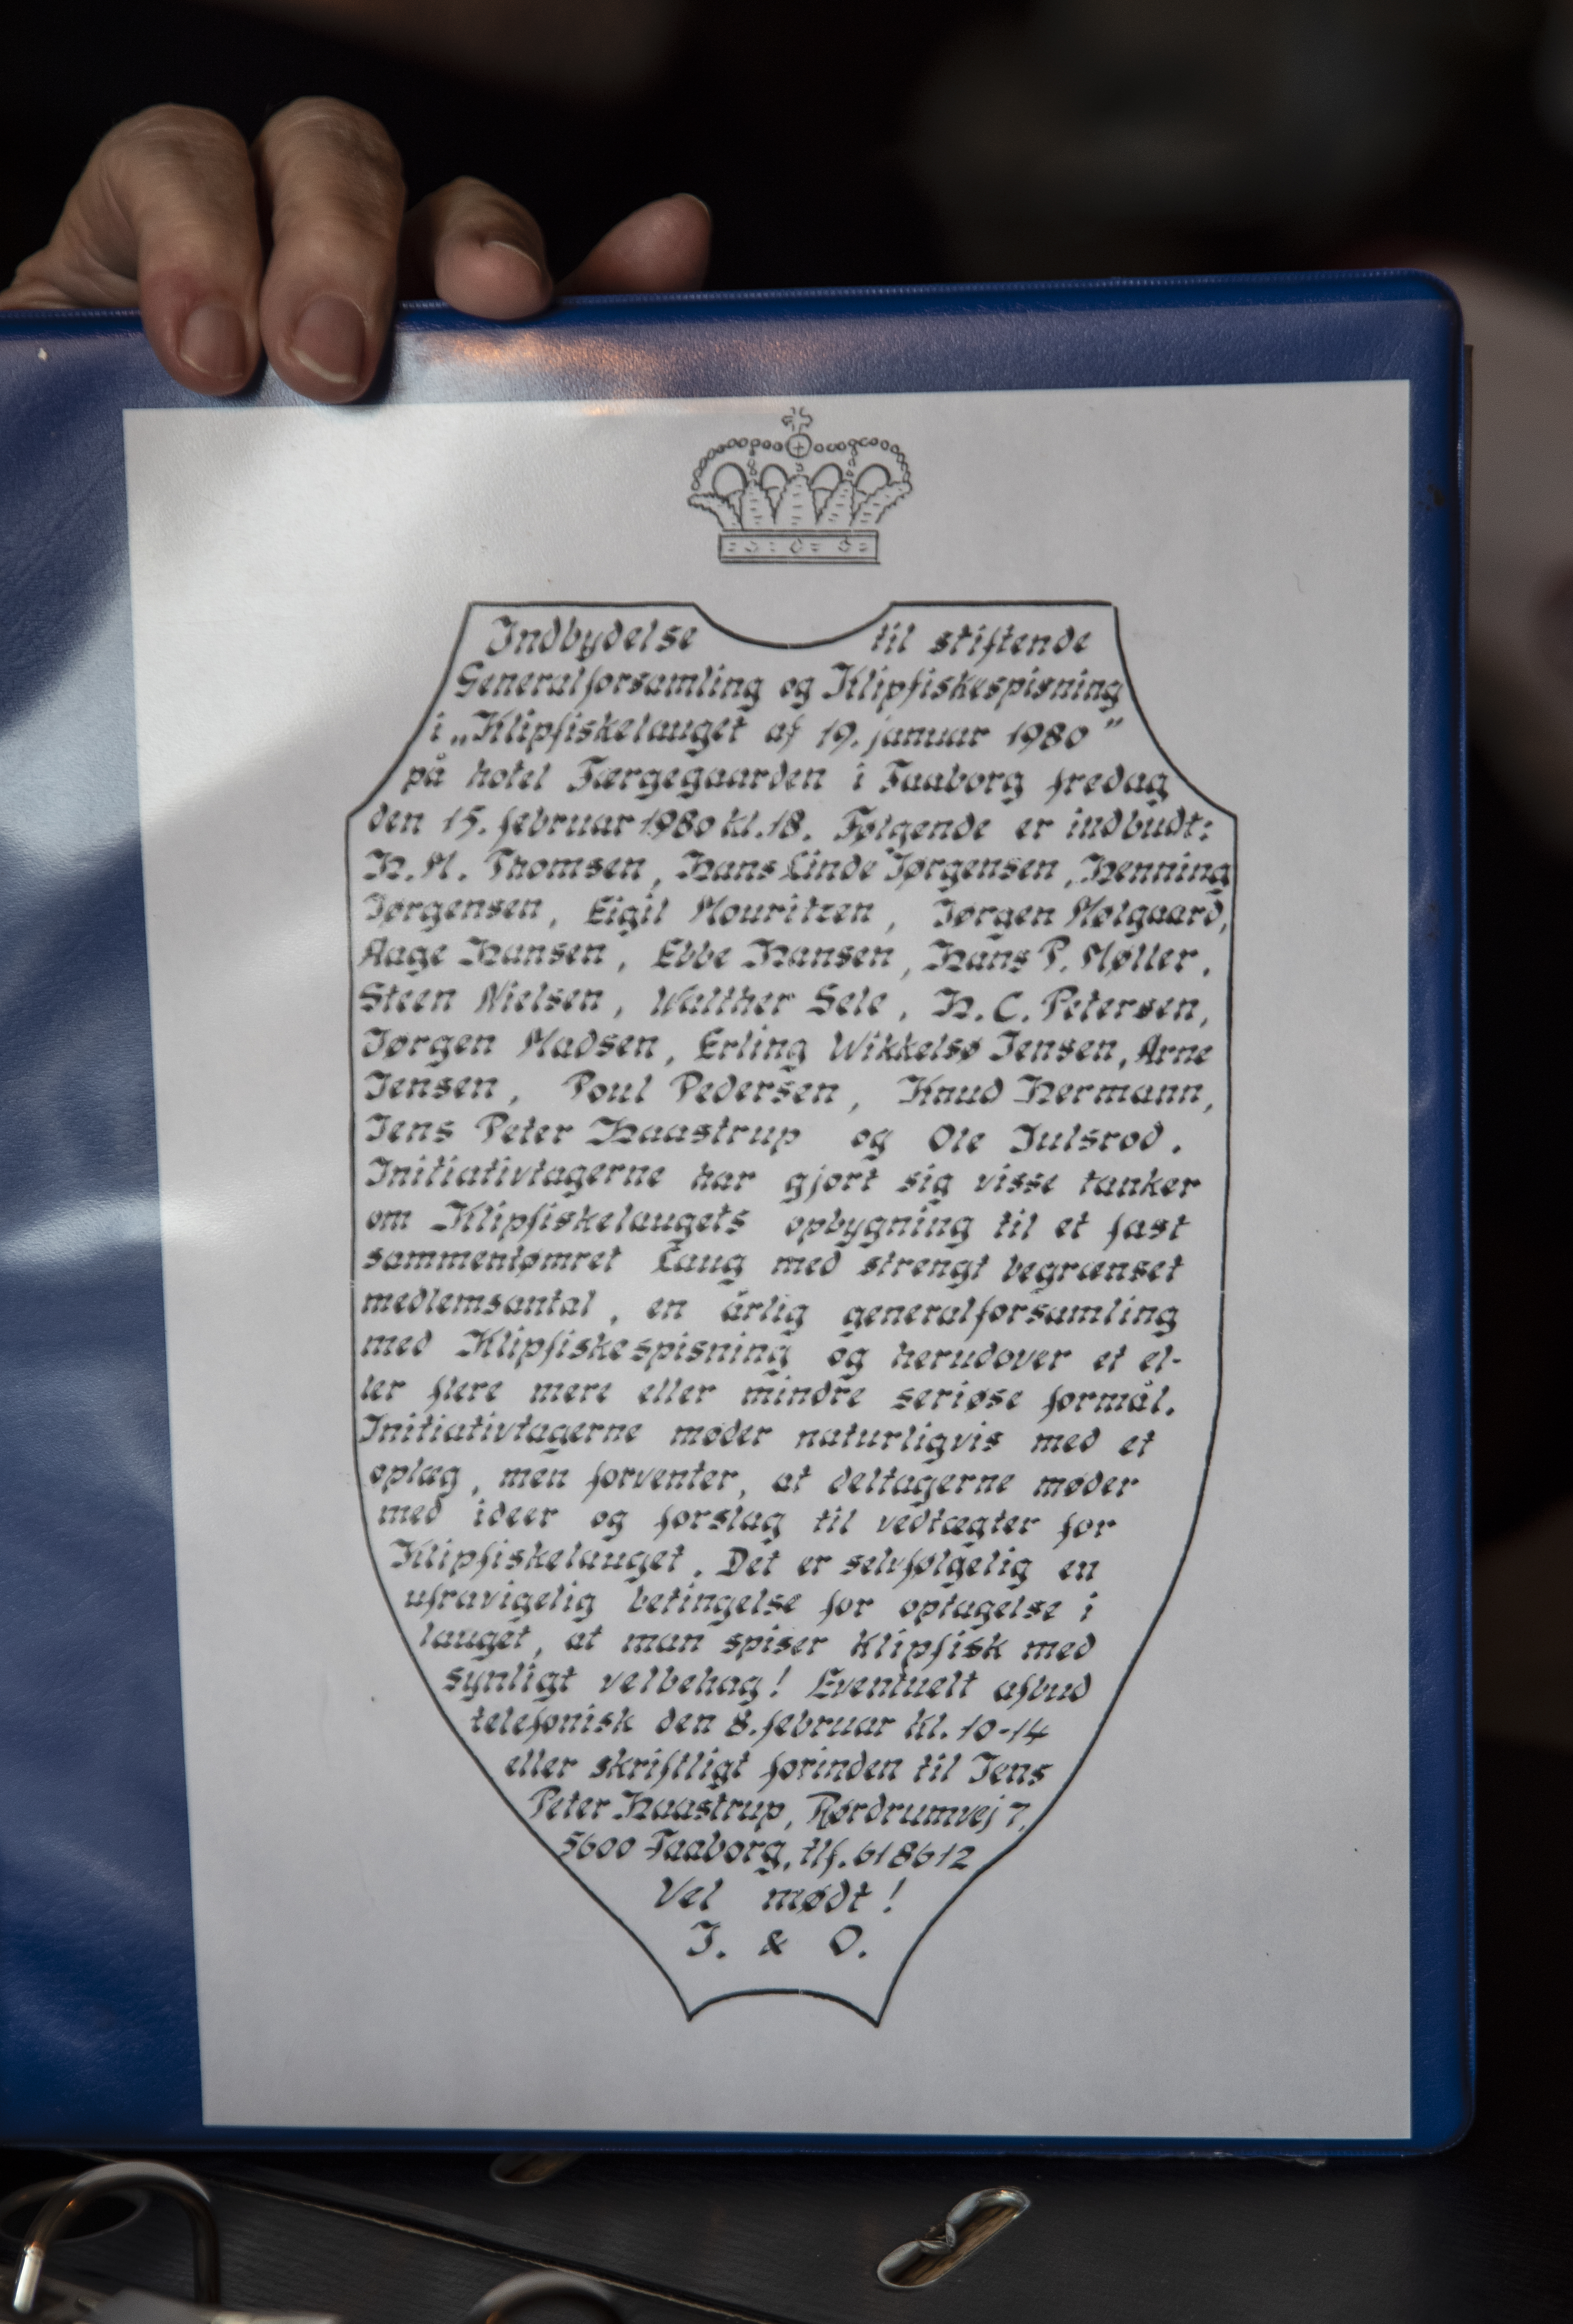 Indbydelse til stiftende
Generalforsamling og Klipfiskespisning
i „Klipfiskelauget af 19. januar 1980”
på hotel Færgegaarden i Faaborg fredag
den 15. februar 1980 kl. 18. Følgende er indbudt:
H. M. Thomsen, Hans Linde Jørgensen, Henning
Jørgensen, Eigil Mouritzen, Jørgen Mølgaard,
Aage Hansen, Ebbe Hansen, Hans P. Møller,
Steen Nielsen, Walther Sele, H. C. Petersen,
Jørgen Madsen, Erling Wikkelsø Jensen, Arne
Jensen, Poul Pedersen, Knud Hermann,
Jens Peter Haastrup og Ole Julsrod.
Initiativtagerne har gjort sig visse tanker
om Klipfiskelaugets opbygning til et fast
sammentømret Laug med strengt begrænset
medlemsantal, en årlig generalforsamling
med Klipfiskespisning og herudover et el-
ler flere mere eller mindre seriøse formål.
Initiativtagerne møder naturligvis med et
oplag, men forventer, at deltagerne møder
med ideer og forslag til vedtægter for
Klipfiskelauget. Det er selvfølgelig en
ufravigelig betingelse for optagelse i
lauget, at man spiser klipfisk med
synligt velbehag! Eventuelt afbud
telefonisk den 8. februar kl. 10-14
eller skriftligt forinden til Jens
Peter Haastrup, Rørdrumvej 7,
5600 Faaborg, tlf. 618612
Vel mødt!
J. & O.